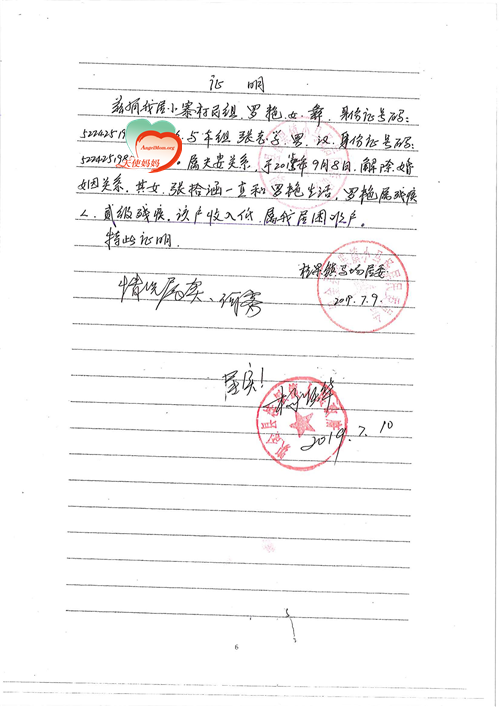 证 明
兹有我居小寨村民组 罗艳,女,彝,身份证号码:
52242519 与本组张志学,男,汉,身份证号码:
5224251985 属夫妻关系,于2018年9月8日,解除婚
姻关系,其女,张拾涵一直和罗艳生活,罗艳属残疾
人,贰级残疾,该户收入低,属我居困难户。
特此证明.
居委
2019.7.9.
情况属实、
属实!
2019.7.10
AngelMom.org
天使妈妈
6